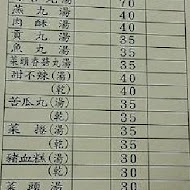 丸湯 70
燕丸湯 40
肉酥湯 40
貢丸湯 35
魚丸湯 35
菜頭香菇丸湯 35
不辣(湯) 40
(乾) 40
苦瓜丸(湯) 35
(乾) 35
菜(湯) 35
(乾) 35
豬血糕(湯) 30
(乾) 30
菜頭湯 30